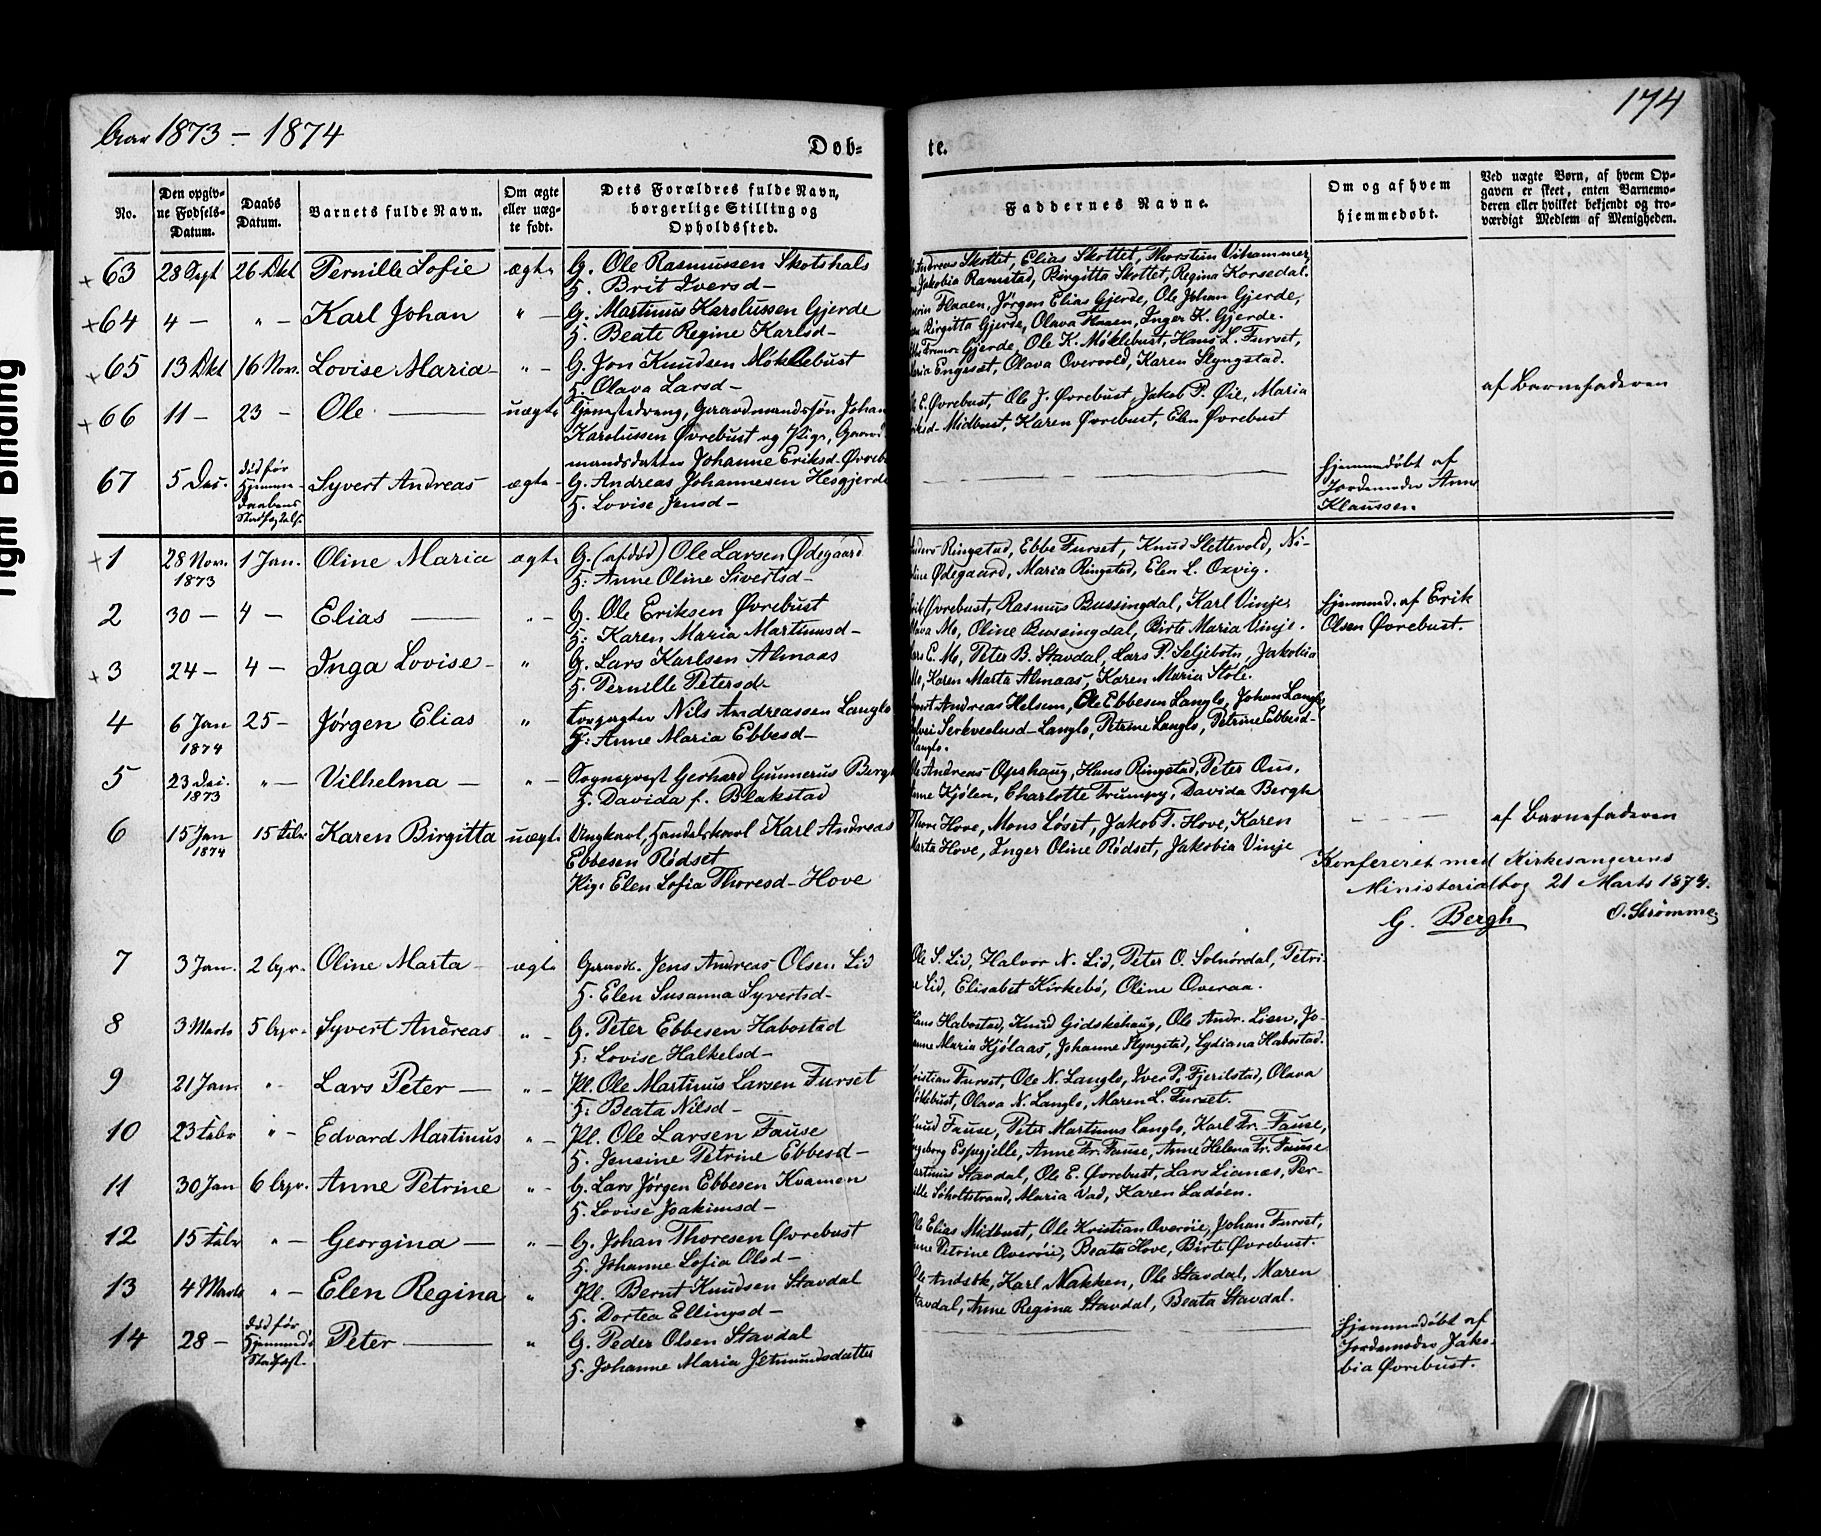 Aar 1873 - 1874
174
Døb-
te.
No.
Den opgiv-
ne Fødsels-
Datum.
Daabs
Datum.
Barnets fulde Navn.
Om ægte
eller uæg-
te født.
Dets Forældres fulde Navn,
borgerlige Stilling og
Opholdssted.
Faddernes Navne.
Om og af hvem
hjemmedøbt.
Ved uægte Børn, af hvem Op-
gaven er skeet, enten Barnemo-
deren eller hvilket bekjendt og tro-
værdigt Medlem af Menigheden.
+ 63 28 Sept 26 Okt Pernille Sofie ægte G. Ole Rasmussen Skotshals
H. Brit Iversd -
Andreas Skottet, Elias Skottet, Thorstein Vihammer,
Jakobia Ramstad, Ringitta Skottet, Regina Korsedal.
+ 64 4 - " - Karl Johan " - G. Martinus Karolussen Gjerde
H. Beate Regine Karlsd -
Flaaen, Jørgen Elias Gjerde, Ole Johan Gjerde,
Birgitta Gjerde, Olava Flaaen, Inger K. Gjerde.
+ 65 13 Okt 16 Nov. Lovise Maria - " - G. Jon Knudsen Møklebust
H. Olava Larsd -
Gjerde, Ole K. Møklebust, Hans L. Furset,
Engeset, Olava Overvold, Karen Slyngstad.
+ 66 11 - 23 - Ole - uægte Gaardmandssøn Johan
Karolussen Øvrebust og Pige, Gaard-
mandsdatter Johanne Eriksd - Øvreb
E. Øvrebust, Ole J. Øvrebust, Jakob P. Øie, Maria
Midbust, Karen Øvrebust, Elen Øvrebust
af Barnefaderen
67 5 Des. død før
Hjemme-
daabens
Stadfæstelse
Syvert Andreas ægte - G. Andreas Johannesen Hesgjerde
H. Lovise Jensd -
hjemmedøbt af
Jordemoder Anne
Klaussen.
+ 1 28 Nov.
1873
1 Jan. Oline Maria ægte G. (afdød) Ole Larsen Ødegaard
H: Anne Oline Sivertsd -
Anders Ringstad, Ebbe Furset, Knud Slettevold, Ni-
line Ødegaard, Maria Ringstad, Elen L. Oxvig.
2 30 - 4 - Elias - " - G. Ole Eriksen Øvrebust
H: Karen Maria Martinusd -
Erik Øvrebust, Rasmus Bussingdal, Karl Vinje,
Olava Mo, Oline Bussingdal, Birte Maria Vinje.
hjemmed. af Erik
Olsen Øvrebust.
+ 3 24 - 4 - Inga Lovise - " G. Lars Karlsen Almaas
H. Pernille Petersd -
Lars E. Mo, Peter B. Stavdal, Lars P. Seljebotn, Jakobia
Mo, Karen Marta Almaas, Karen Maria Stole.
4 6 Jan
1874
25 - Jørgen Elias " Nils Andreassen Langlo
H: Anne Maria Ebbesd -
Andreas Helsem, Ole Ebbesen Langlo, Johan Langlo,
Langlo, Petrine Langlo, Petrine Ebbesd -
Langlo.
5 23 Des.
1873
" - Vilhelma - " - Sogneprest Gerhard Gunnerus Bergh
H. Davida f. Blakstad
Ole Andreas Opshaug, Hans Ringstad, Peter Ous,
Anne Kjølen, Charlotte Trumpy, Davida Bergh
6 15 Jan
1874
15 Febr Karen Birgitta uægte Ungkarl, Handelskarl Karl Andreas
Ebbesen Rødset
Pige Elen Sofia Thoresd - Hove
Thore Hove, Mons Løset, Jakob T. Hove, Karen
Marta Hove, Inger Oline Rødset, Jakobia Vinje
af Barnefaderen
Konfereret med Kirkesangerens
Ministerialbog 21 Marts 1874.
G. Bergh O. Strømme
7 3 Jan. 2 Apr. Oline Marta - ægte Jens Andreas Olsen Lid
H. Elen Susanna Syvertsd -
Ole S. Lid, Halvor N. Lid, Peter O. Solnørdal, Petri-
ne Lid, Elisabet Kirkebø, Oline Overaa.
8 3 Marts 5 Apr. Syvert Andreas " - G. Peter Ebbesen Habostad
H: Lovise Halkelsd -
Hans Habostad, Knud Gidskehaug, Ole Andr. Lien, Jo-
anne Maria Hjølaas, Johanne Slyngstad, Lydiana Habostad.
9 21 Janr " - Lars Peter - " - Pl. Ole Martinus Larsen Furset
H: Beata Nilsd -
Kristian Furset, Ole N. Langlo, Iver P. Fjerilstad, Olava
Møklebust, Olava N. Langlo, Maren L. Furset.
10 23 Febr " - Edvard Martinus " - Pl. Ole Larsen Fause
H. Jensine Petrine Ebbesd -
Knud Fause, Peter Martinus Langlo, Karl Fr. Fause,
Ingeborg Espegjelle, Anne Fr. Fause, Anne Helena Fr. Fause
11 30 Jan 6 Apr. Anne Petrine " - G. Lars Jørgen Ebbesen Kvamen
H. Lovise Joakimsd -
Martinus Stavdal, Ole E. Øvrebust, Lars Lianes, Per-
nille Søholtstrand, Maria Vad, Karen Ladøen.
12 15 Febr " - Georgina - " - G. Johan Thoresen Øvrebust
H. Johanne Sofia Olsd -
Ole Elias Midbust, Ole Kristian Overøie, Johan Furset,
Anne Petrine Overøie, Beata Hove, Birte Øvrebust.
13 4 Marts " - Elen Regina " Pl. Bernt Knudsen Stavdal
H. Dortea Ellingsd -
Ole Andsøk, Karl Nakken, Ole Stavdal, Maren
Stavdal, Anne Regina Stavdal, Beata Stavdal.
14 28 - død før
Hjemmed's
Stadfæst.
Peter - " G. Peder Olsen Stavdal
H. Johanne Maria Jetmundsdatter
hjemmedøbt af
Jordemoder Jako-
bia Øvrebust.
Tight Binding